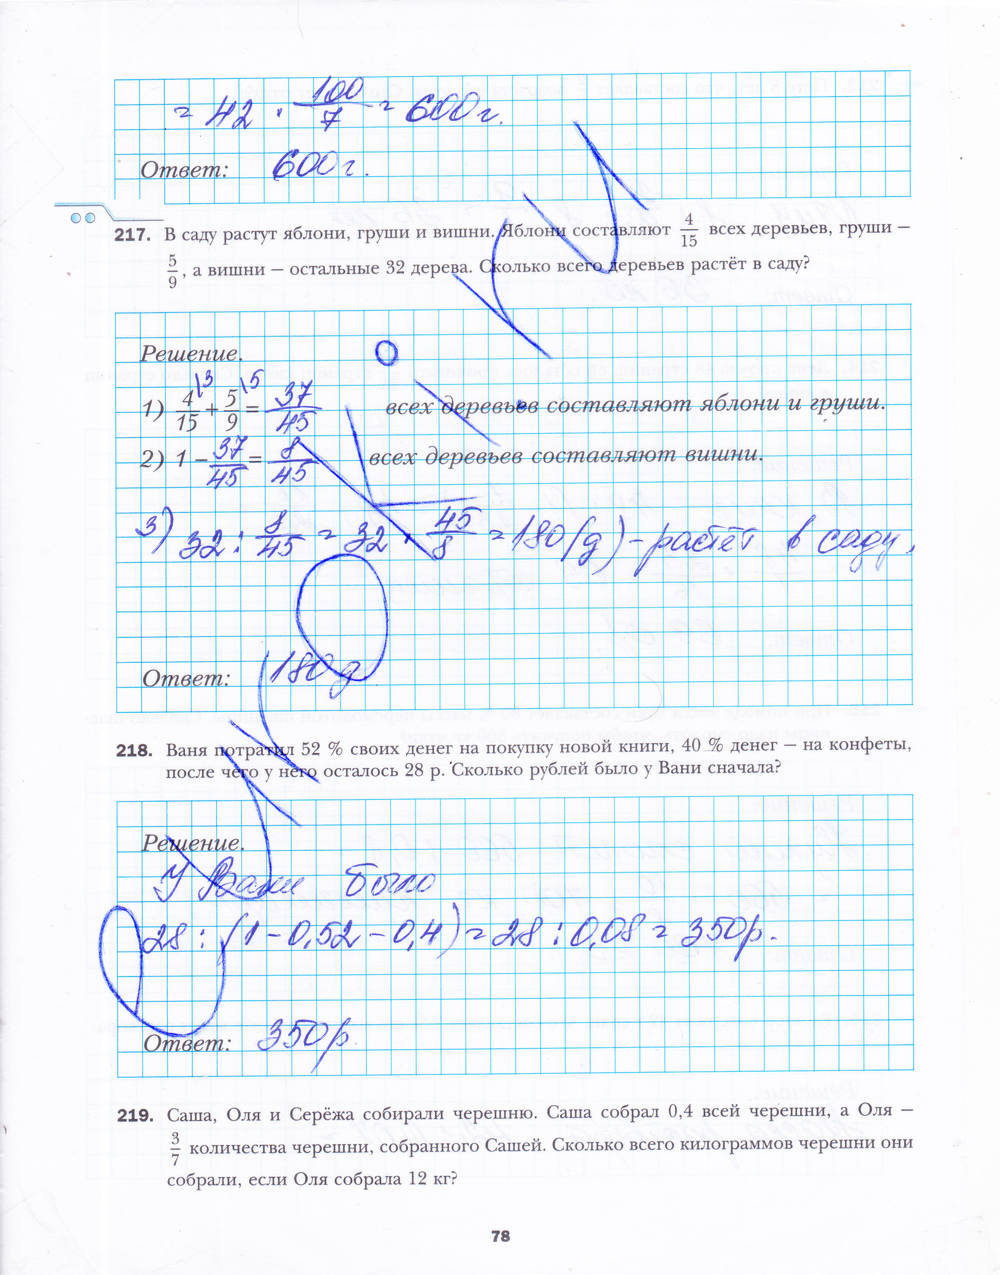 = 42 · 100/7 = 600 г.
Ответ: 600 г.
217. В саду растут яблони, груши и вишни. Яблони составляют 4/15 всех деревьев, груши –
5/9, а вишни – остальные 32 дерева. Сколько всего деревьев растёт в саду?
Решение.
1) 4/15 \3 + 5/9 \5 = 37/45 всех деревьев составляют яблони и груши.
2) 1 – 37/45 = 8/45 всех деревьев составляют вишни.
3) 32 : 8/45 = 32 · 45/8 = 180 (д) – растёт в саду.
Ответ: 180 д
218. Ваня потратил 52 % своих денег на покупку новой книги, 40 % денег – на конфеты,
после чего у него осталось 28 р. Сколько рублей было у Вани сначала?
Решение.
У Вани было
28 : (1 – 0,52 – 0,4) = 28 : 0,08 = 350 р.
Ответ: 350 р
219. Саша, Оля и Серёжа собирали черешню. Саша собрал 0,4 всей черешни, а Оля –
3/7 количества черешни, собранного Сашей. Сколько всего килограммов черешни они
собрали, если Оля собрала 12 кг?
78